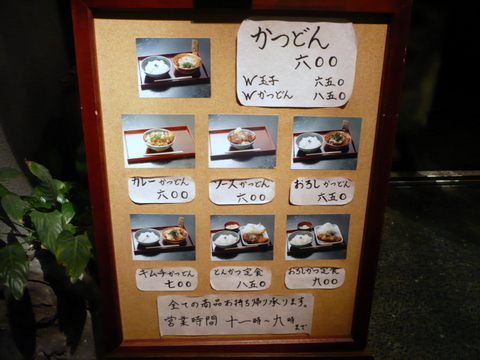 かつどん
六〇〇
W玉子 六五〇
Wかつどん 八五〇
カレーかつどん
六〇〇
ソースかつどん
六〇〇
おろしかつどん
六五〇
キムチかつどん
七〇〇
とんかつ定食
八五〇
おろしかつ定食
九〇〇
全ての商品お持ち帰り承ります。
営業時間 十一時～九時まで